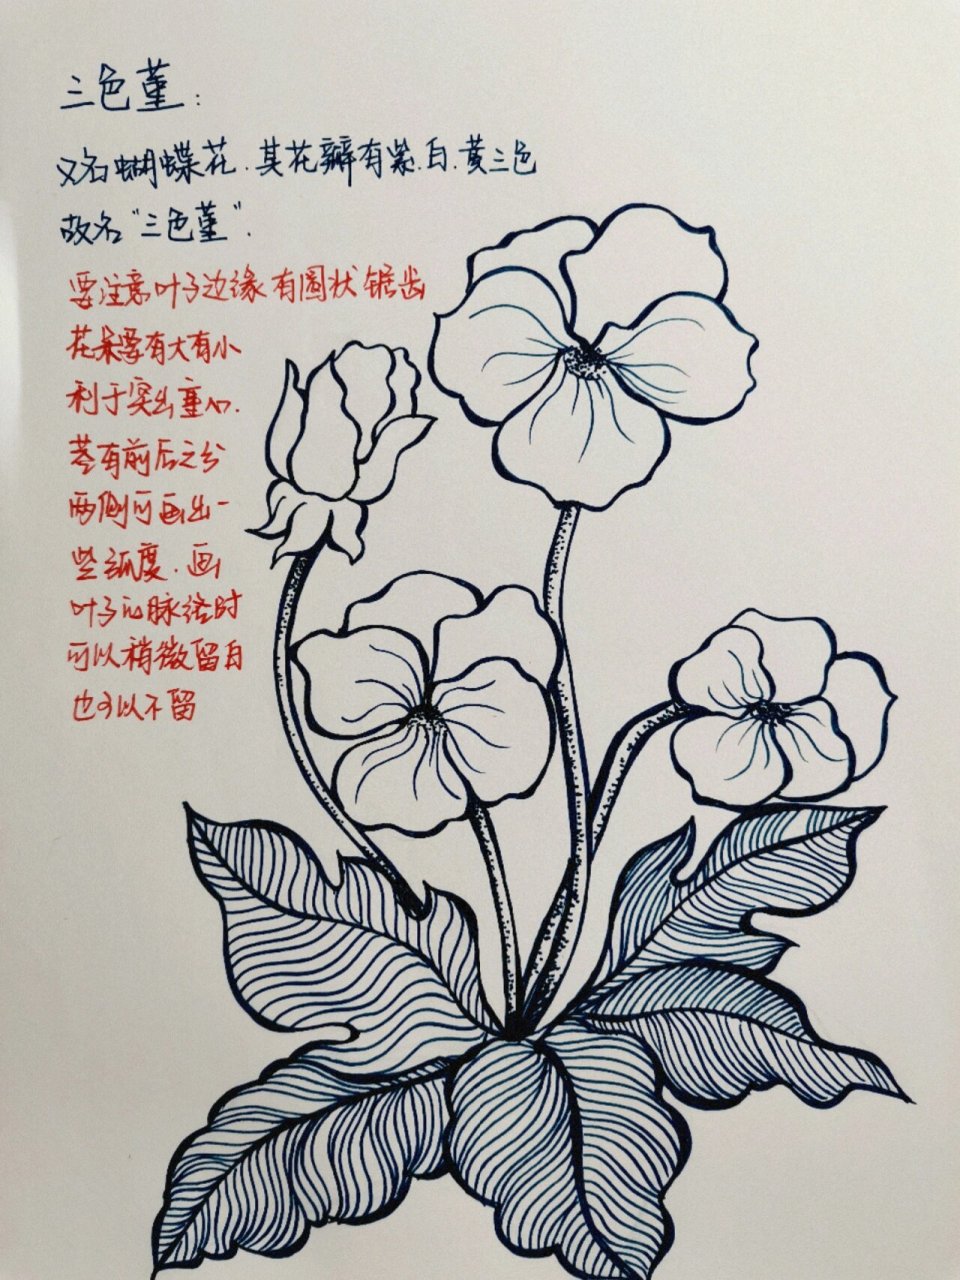 三色堇：
又名蝴蝶花.其花瓣有紫.白.黄三色
故名"三色堇".
要注意叶子边缘有圆状锯齿
花朵要有大有小
利于突出重心.
茎有前后之分
两侧可画出一
些弧度.画
叶子的脉络时
可以稍微留白
也可以不留